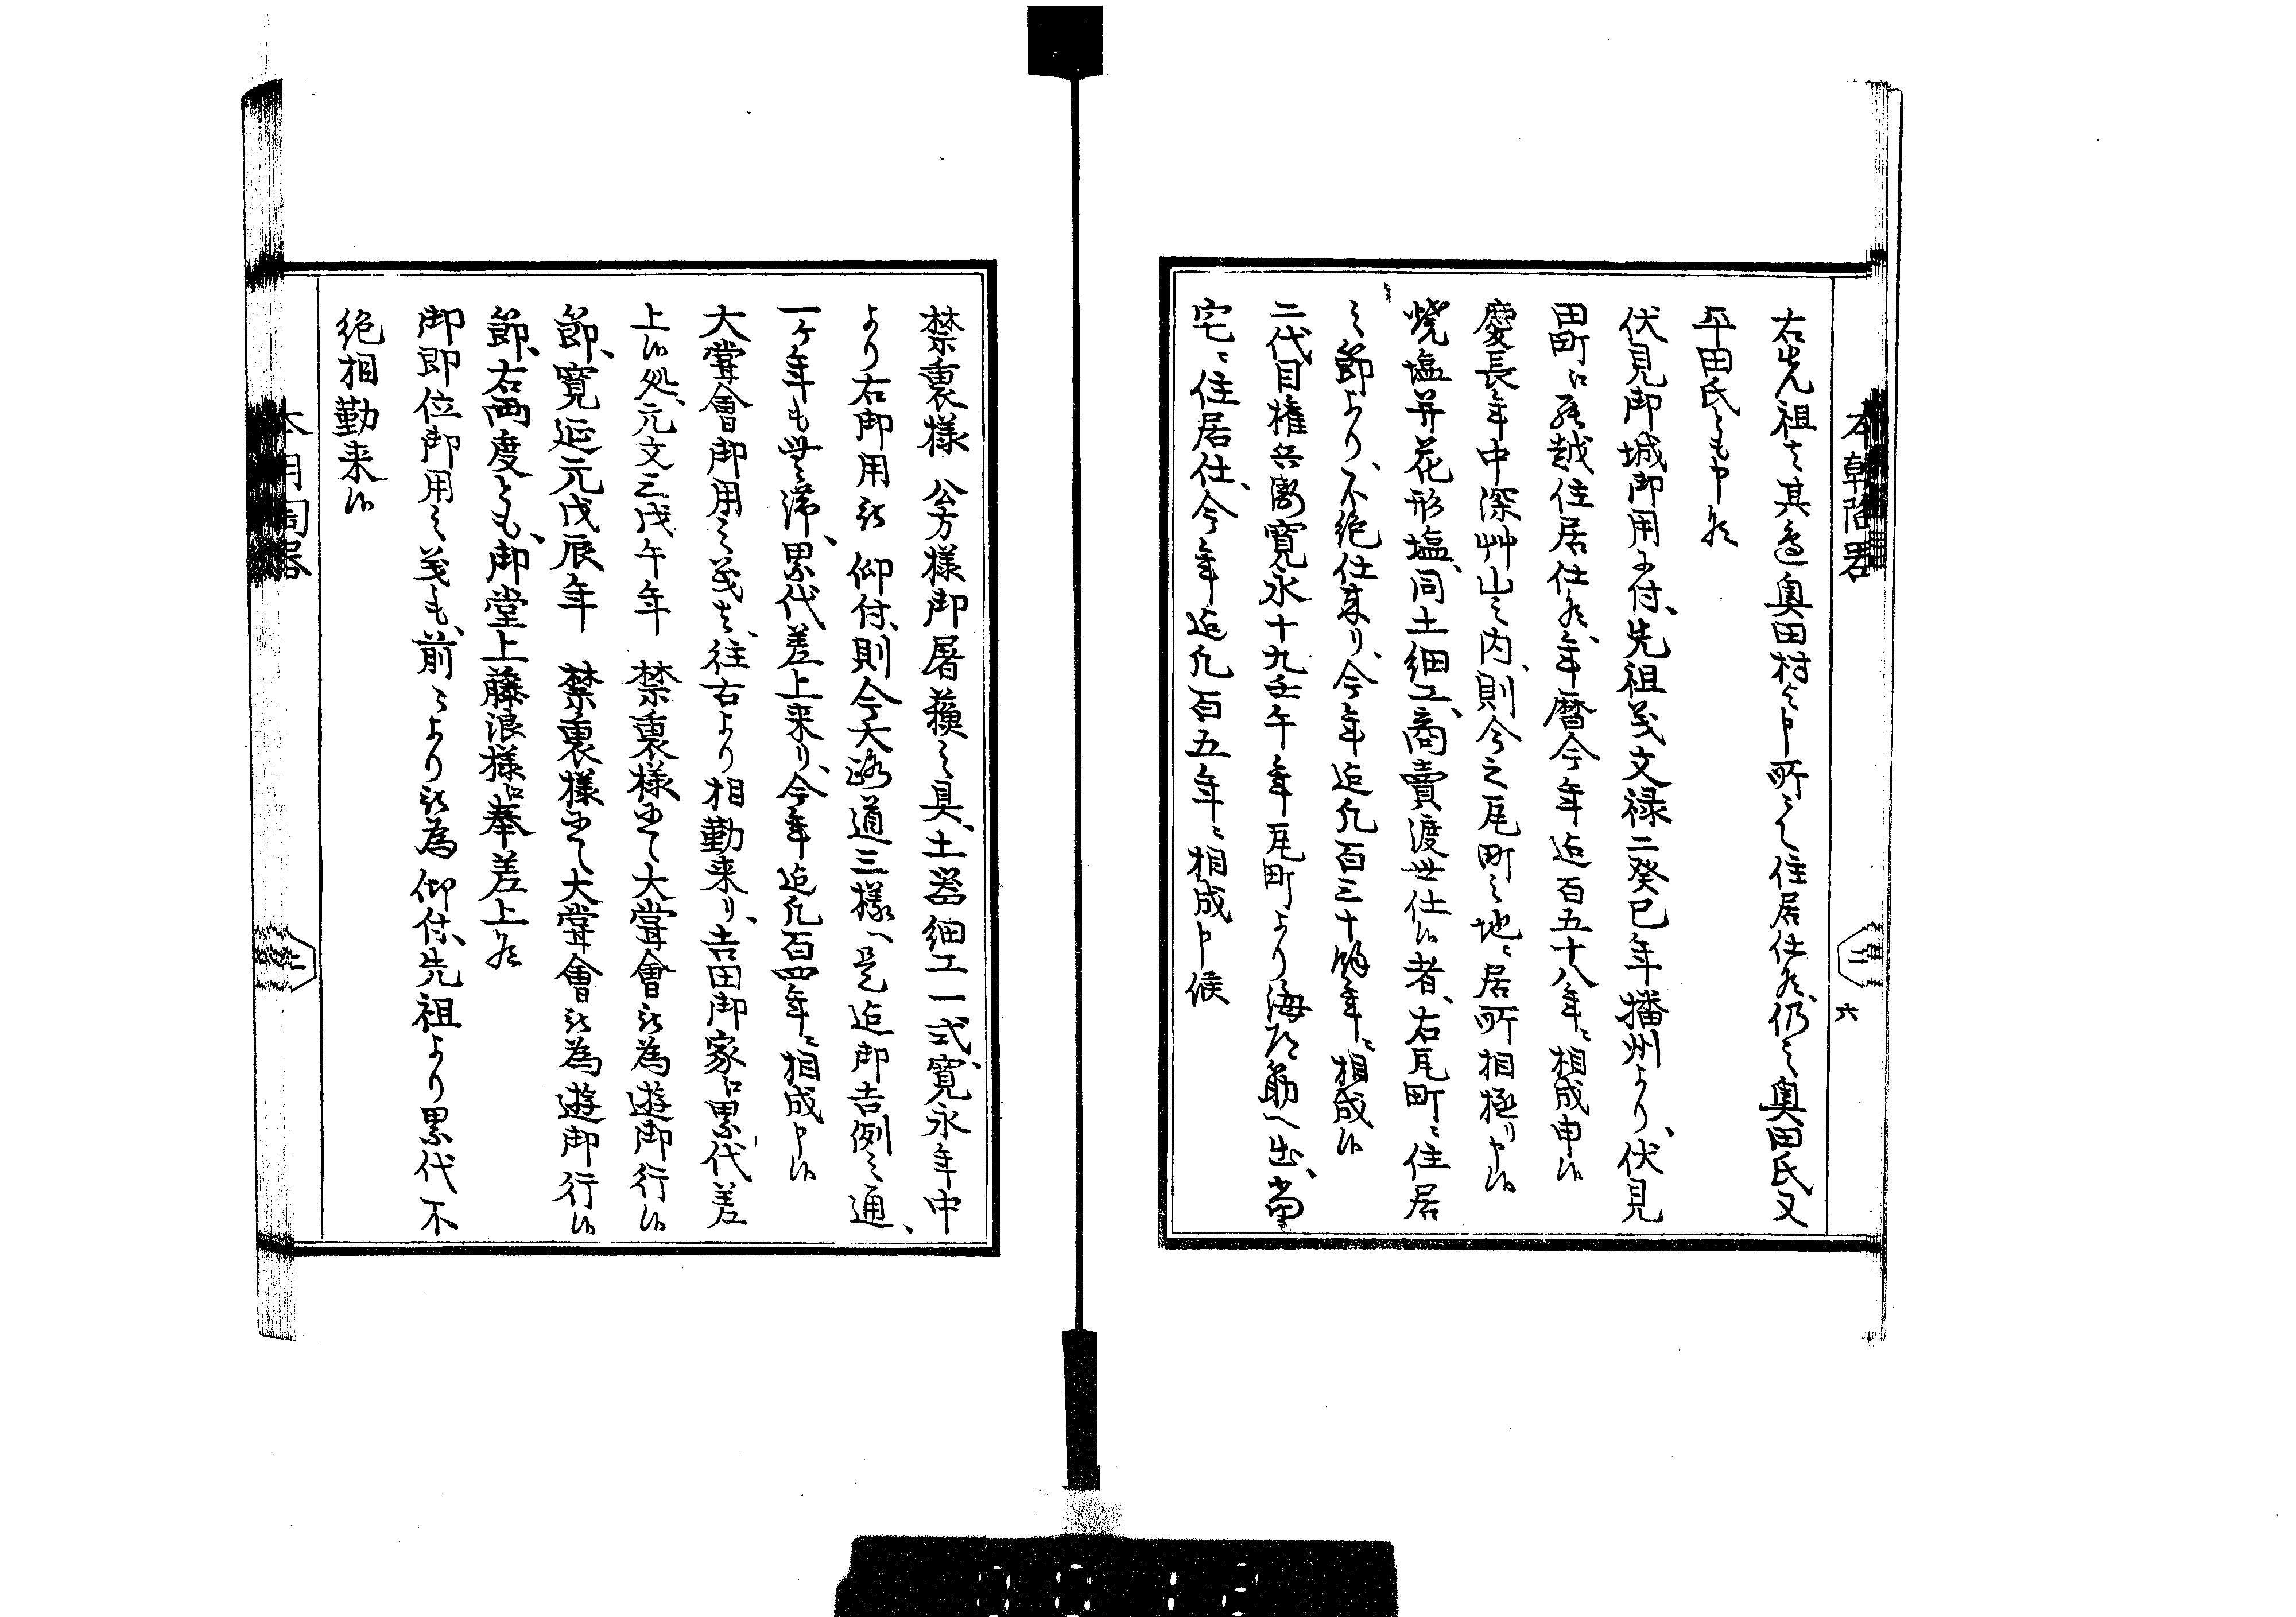 本朝陶器
六
右先祖者其辺奥田村と申所ニ而住居仕候、仍之奥田氏又
平田氏とも申候
伏見御城御用ニ付、先祖義文禄二癸巳年播州より、伏見
田町江罷越住居仕候、年暦今年迄百五十八年ニ相成申候
慶長年中深艸山之内、則今之瓦町之地ニ居所相極リ申候
焼塩并花形塩、同土細工、商賣渡世仕候者、右瓦町ニ住居
之節より、不絶仕来リ、今年迄凡百三十餘年ニ相成候
二代目権兵衛寛永十九壬午年瓦町より海道筋へ出、当
宅ニ住居仕、今年迄凡百五年ニ相成申候
禁裏様 公方様御屠蘇之具、土器細工一式、寛永年中
より右御用被 仰付、則今大路道三様へ是迄御吉例之通、
一ケ年も無滞、累代差上来リ、今年迄凡百四年ニ相成申候
大嘗會御用之義者、往古より相勤来リ、吉田御家江累代差
上候処、元文三戊午年 禁裏様ニて大嘗會被為遊御行候
節、寛延元戊辰年 禁裏様ニて大嘗會被為遊御行候
節、右両度とも、御堂上藤浪様江奉差上候
御即位御用之義も、前々より被為 仰付、先祖より累代不
絶相勤来候